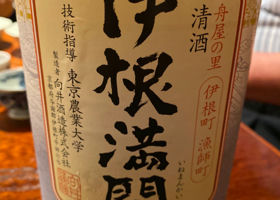 舟屋の里
伊根町 漁師町
清酒
伊根満開
いねまんかい
技術指導・東京農業大学
製造者 向井酒造株式会社